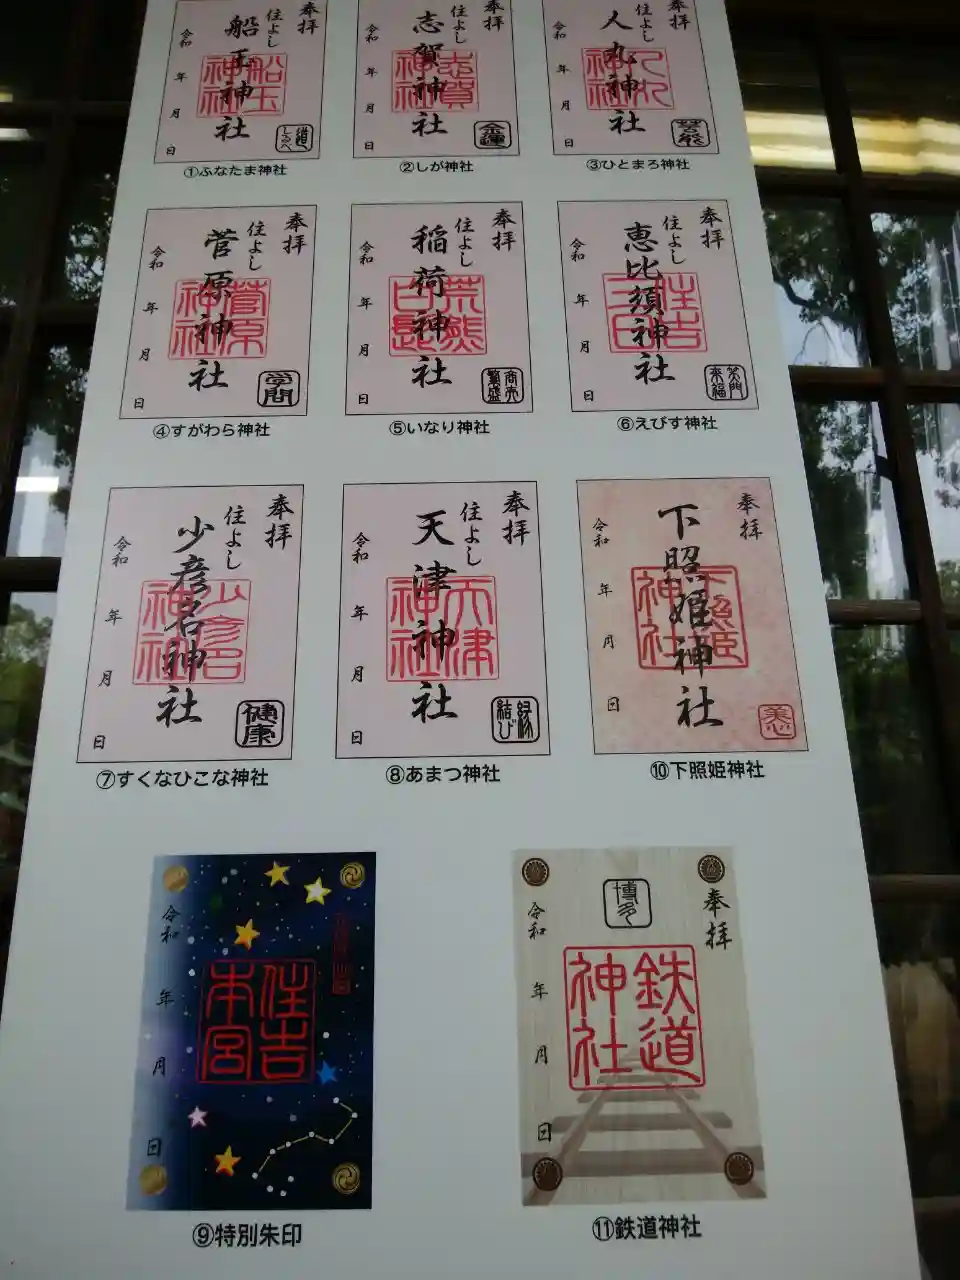 奉拝
住よし
船玉神社
船玉神社
令和
年
月
日
道しるべ
①ふなたま神社
奉拝
住よし
志賀神社
志賀神社
令和
年
月
日
金運
②しが神社
奉拝
住よし
人丸神社
人丸神社
令和
年
月
日
芸能
③ひとまろ神社
奉拝
住よし
菅原神社
菅原神社
令和
年
月
日
学問
④すがわら神社
奉拝
住よし
稲荷神社
荒熊
白長
令和
年
月
日
商売
繁盛
⑤いなり神社
奉拝
住よし
恵比須神社
住吉
二日
令和
年
月
日
笑門
来福
⑥えびす神社
奉拝
住よし
少彦名神社
少彦名
神社
令和
年
月
日
健康
⑦すくなひこな神社
奉拝
住よし
天津神社
天津
神社
令和
年
月
日
縁
結び
⑧あまつ神社
奉拝
下照姫神社
下照姫
神社
令和
年
月
日
美心
⑩下照姫神社
住吉
本宮
令和
年
月
日
⑨特別朱印
奉拝
博多
鉄道
神社
令和
年
月
日
⑪鉄道神社